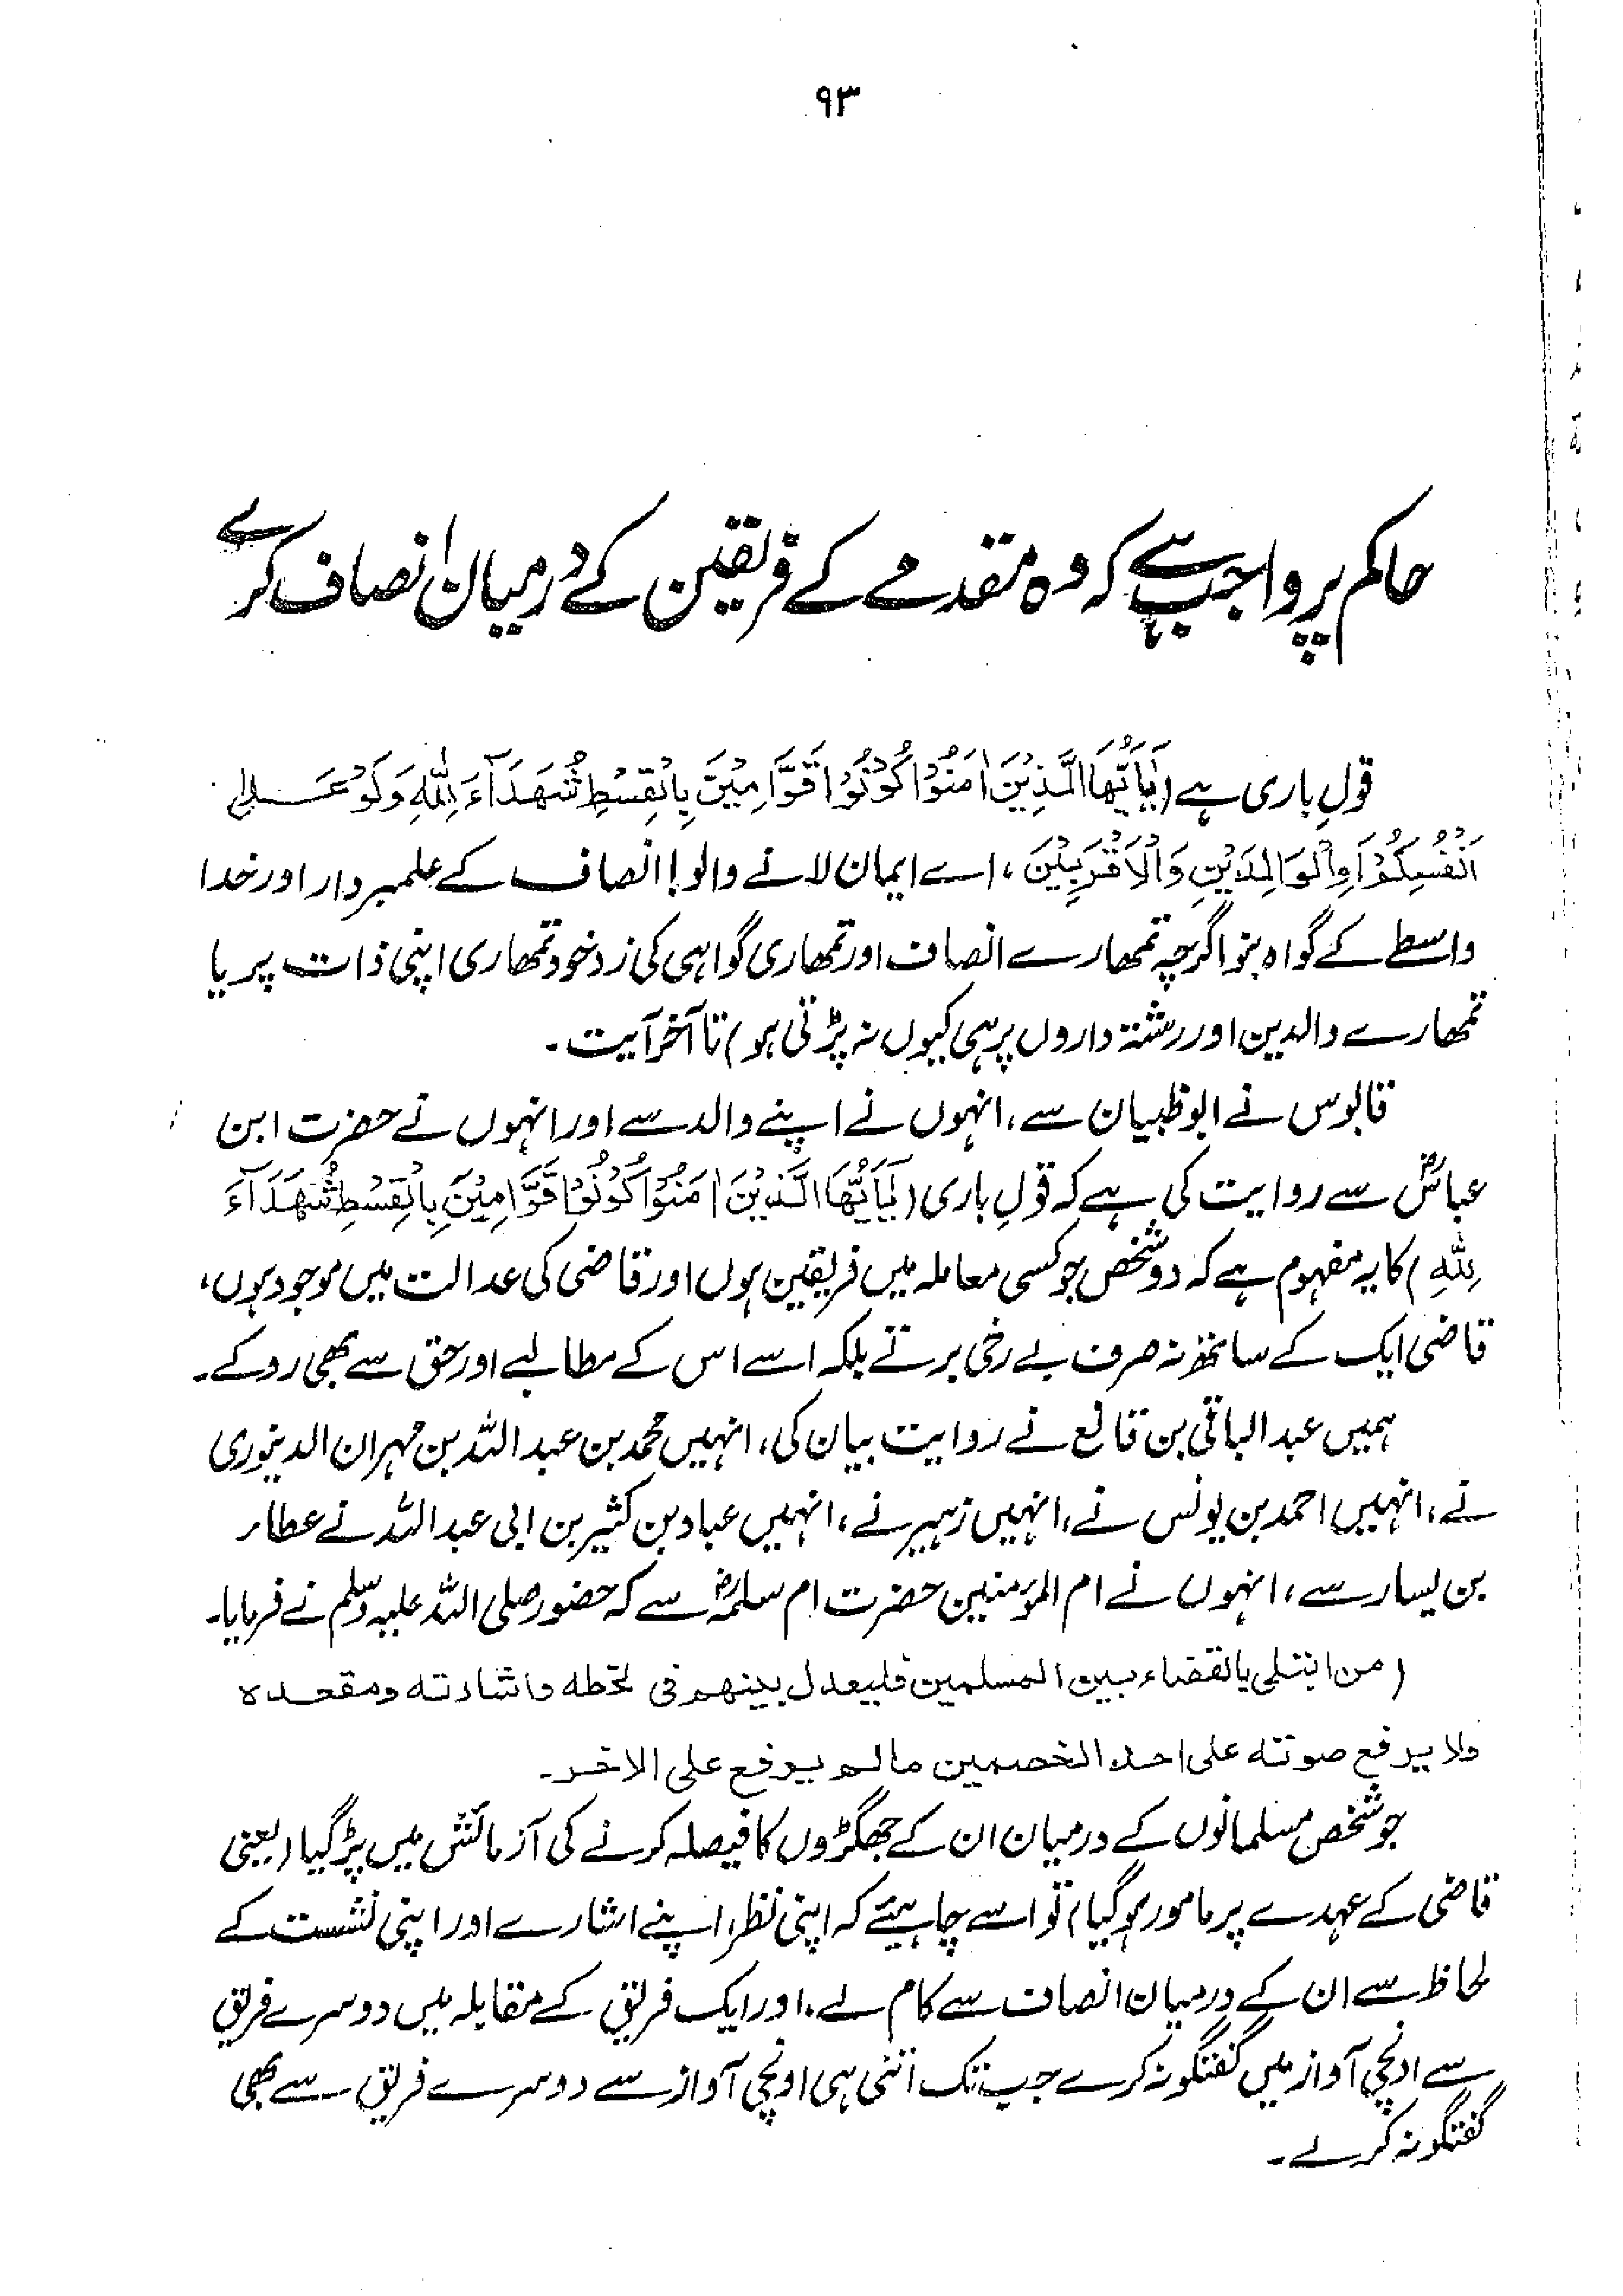 ۹۳
حاکم پر واجب ہے کہ وہ مقدمے کے فریقین کے درمیان انصاف کرے
قولِ باری ہے (یٰۤاَیُّهَا الَّذِیْنَ اٰمَنُوْا كُوْنُوْا قَوَّامِیْنَ بِالْقِسْطِ شُهَدَآءَ لِلّٰهِ وَلَوْ عَلٰى
اَنْفُسِكُمْ اَوِ الْوَالِدَیْنِ وَالْاَقْرَبِیْنَ، اے ایمان لانے والو! انصاف کے علمبردار اور خدا
واسطے کے گواہ بنو اگرچہ تمھارے انصاف اور تمھاری گواہی کی زد خود تمھاری اپنی ذات پر یا
تمھارے والدین اور رشتہ داروں پر ہی کیوں نہ پڑتی ہو) تا آخر آیت۔
قابوس نے ابوظبیان سے، انہوں نے اپنے والد سے اور انہوں نے حضرت ابن
عباسؓ سے روایت کی ہے کہ قولِ باری (یٰۤاَیُّهَا الَّذِیْنَ اٰمَنُوْا كُوْنُوْا قَوَّامِیْنَ بِالْقِسْطِ شُهَدَآءَ
لِلّٰهِ) کا یہ مفہوم ہے کہ دو شخص جو کسی معاملہ میں فریقین ہوں اور قاضی کی عدالت میں موجود ہوں،
قاضی ایک کے ساتھ نہ صرف بے رخی برتے بلکہ اسے اس کے مطالبے اور حق سے بھی روکے۔
ہمیں عبدالباقی بن قانع نے روایت بیان کی، انہیں محمد بن عبداللہ بن مہران الدینوری
نے، انہیں احمد بن یونس نے، انہیں زہیر نے، انہیں عباد بن کثیر بن ابی عبداللہ نے عطاء
بن یسار سے، انہوں نے ام المؤمنین حضرت ام سلمہؓ سے کہ حضور صلی اللہ علیہ وسلم نے فرمایا۔
(من ابتلی بالقضاء بین المسلمین فلیعدل بینهم فی لحظه واشارته ومقعده
ولا یرفع صوته علی احد الخصمین مالم یرفع علی الاخر۔
جو شخص مسلمانوں کے درمیان ان کے جھگڑوں کا فیصلہ کرنے کی آزمائش میں پڑ گیا (یعنی
قاضی کے عہدے پر مامور ہو گیا) تو اسے چاہیئے کہ اپنی نظر، اپنے اشارے اور اپنی نشست کے
لحاظ سے ان کے درمیان انصاف سے کام لے۔ اور ایک فریق کے مقابلہ میں دوسرے فریق
سے اونچی آواز میں گفتگو نہ کرے جب تک اتنی ہی اونچی آواز سے دوسرے فریق سے بھی
گفتگو نہ کرے۔